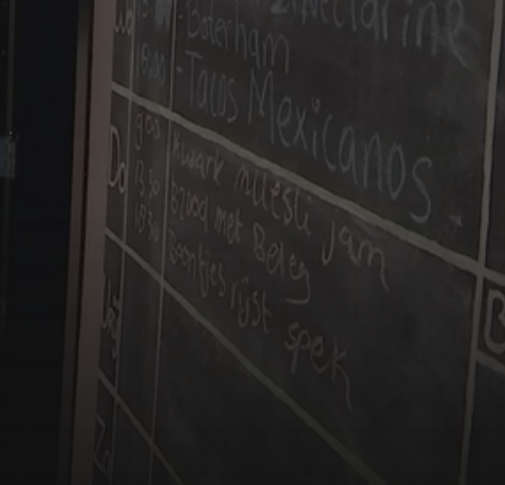 Nectarine
-Boterham
18:00 -Tacos Mexicanos
Do 9:00 Kwark muesli jam
13:30 Brood met Beleg
18:30 Boontjes rijst spek
Vrij